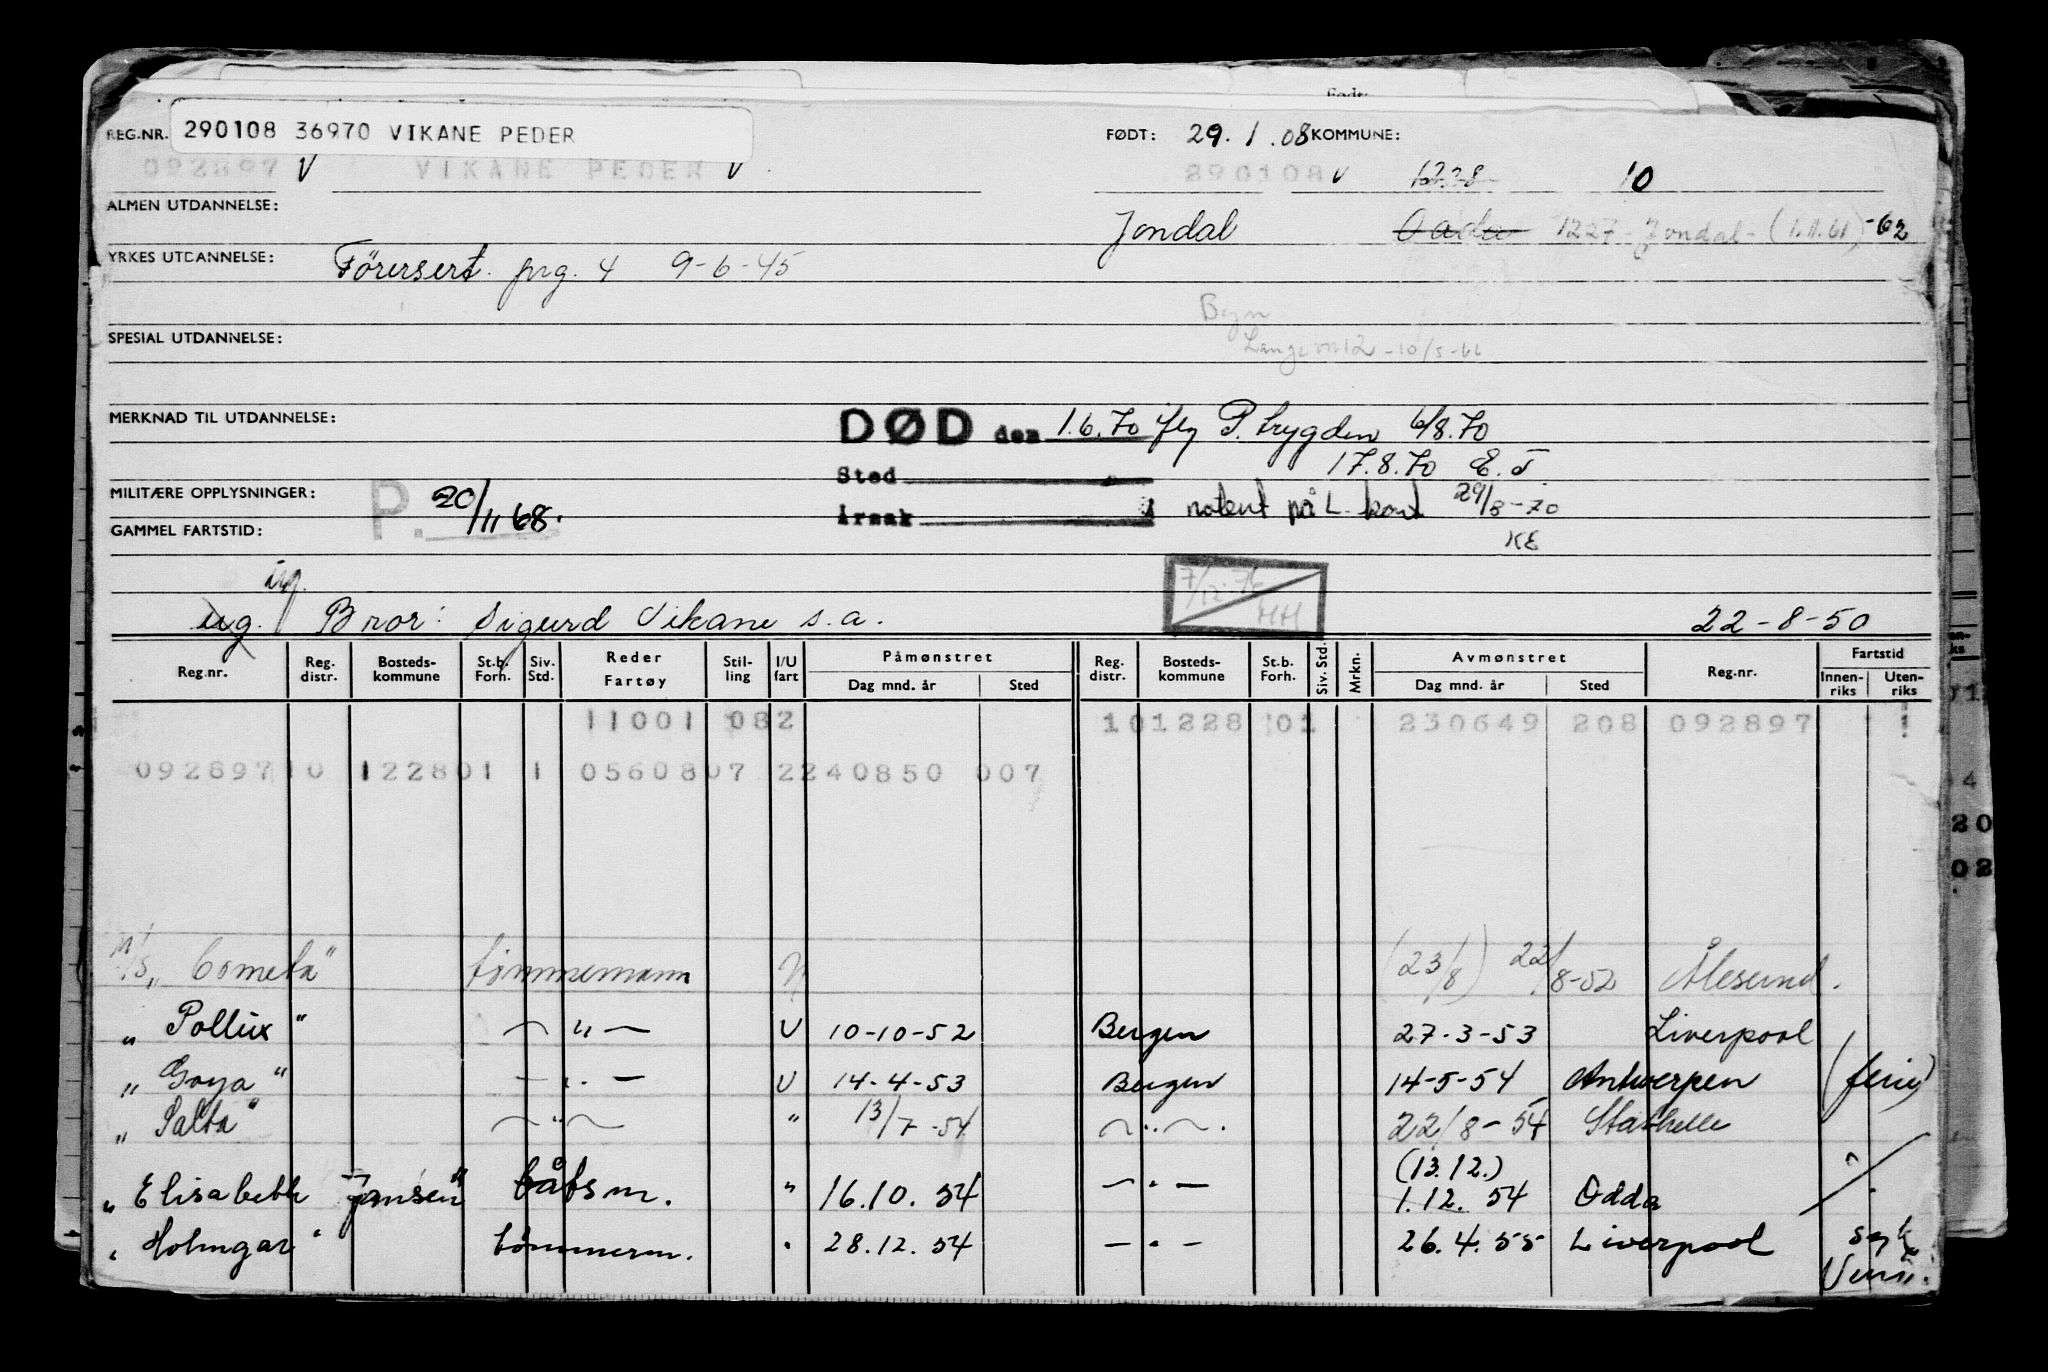 Født:
REG.NR. 290108 36970 VIKANE PEDER FØDT: 29.1.08 KOMMUNE:
092897 V VIKANE PEDER V 290108 V 1228 10
ALMEN UTDANNELSE: Jondal Odda 1227 - Jondal - (1.11.61) -62
YRKES UTDANNELSE: Førersert. prg. 4 9-6-45
SPESIAL UTDANNELSE: 10/5-66
MERKNAD TIL UTDANNELSE: DØD den 1.6.70 iflg P.trygden 6/8.70
Sted 17.8.70 E.T
MILITÆRE OPPLYSNINGER: P. 20/11 68.
Årsak notert på L. kort 29/8-70
GAMMEL FARTSTID: KE
ug. 7/12-76 HH
ug. Bror: Sigurd Vikane s.a. 22-8-50
Reg.nr. Reg. distr. Bosteds-kommune St.b. Forh. Siv. Std. Reder Fartøy Stil-ling I/U fart Påmønstret Dag mnd. år Sted Reg. distr. Bosteds-kommune St.b. Forh. Siv. Std. Mrkn. Avmønstret Dag mnd. år Sted Reg.nr. Fartstid Innen-riks Uten-riks
11001 082 101228 01 230649 208 092897
092897 10 122801 1 0560807 2240850 007
M/S "Cometa" tømmemann (23/8) 22/8-52 Ålesund.
" Pollux " — " — U 10-10-52 Bergen 27-3-53 Liverpool
" Goya " — " — U 14-4-53 Bergen 14-5-54 Antwerpen (ferie)
" Salta " — " — " 13/7-54 — " —. 22/8-54 Stathelle
(13.12.)
" Elisabeth Jansen" båtsm. " 16.10.54 — " — 1.12.54 Odda
" Holmgar " tømmerm. " 28.12.54 — " — 26.4.55 Liverpool syk